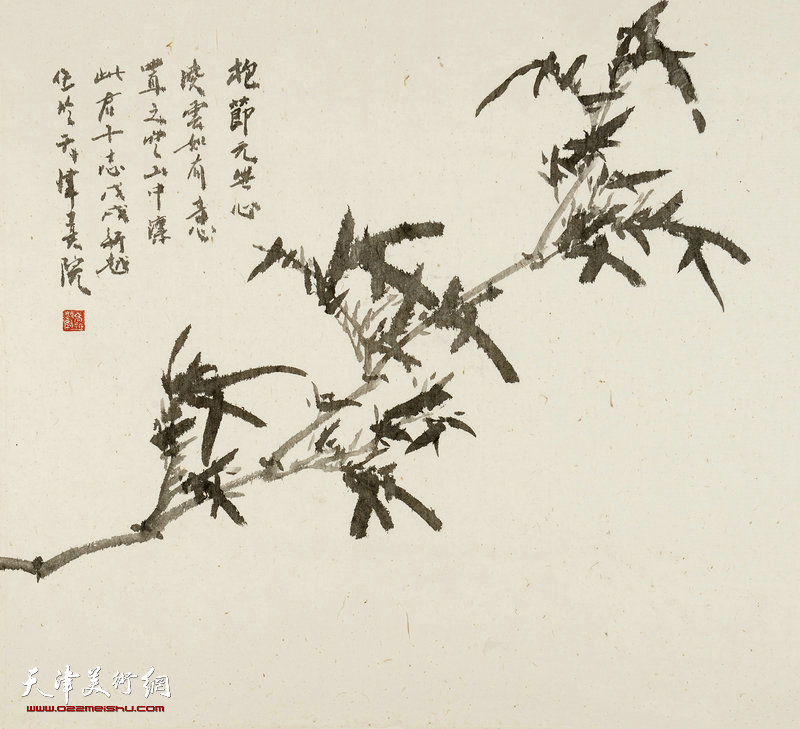 抱節元無心
凌雲如有意
置之空山中凜
此君子志戊戌新越
作於天津画院
天津美術網
www.022meishu.com